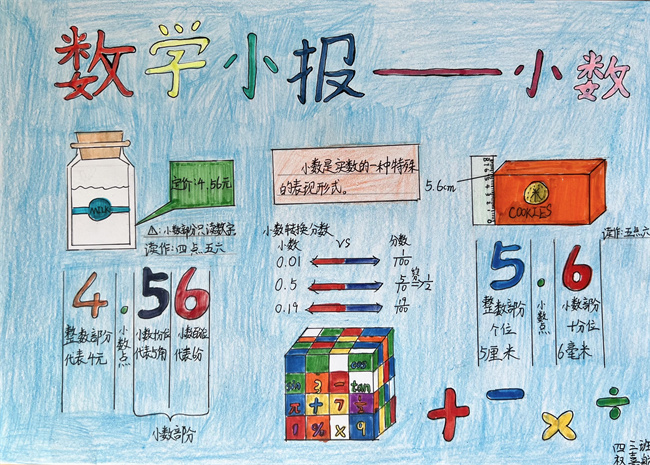 数学小报——小数
MILK
定价:4.56元
△:小数部分只读数字
读作:四点五六
4.56
整数部分
代表4元
小数点
小数十分位
代表5角
小数百分位
代表6分
小数部分
小数是实数的一种特殊
的表现形式。
小数转换分数
小数 VS 分数
0.01 1/100
0.5 5/10 = 1/2
0.19 19/100
tan
3 -
π + 7
1 % × 9
5.6cm
COOKIES
读作:五点六
5.6
整数部分
个位
5厘米
小数点
小数部分
十分位
6毫米
+ - × ÷
四三班